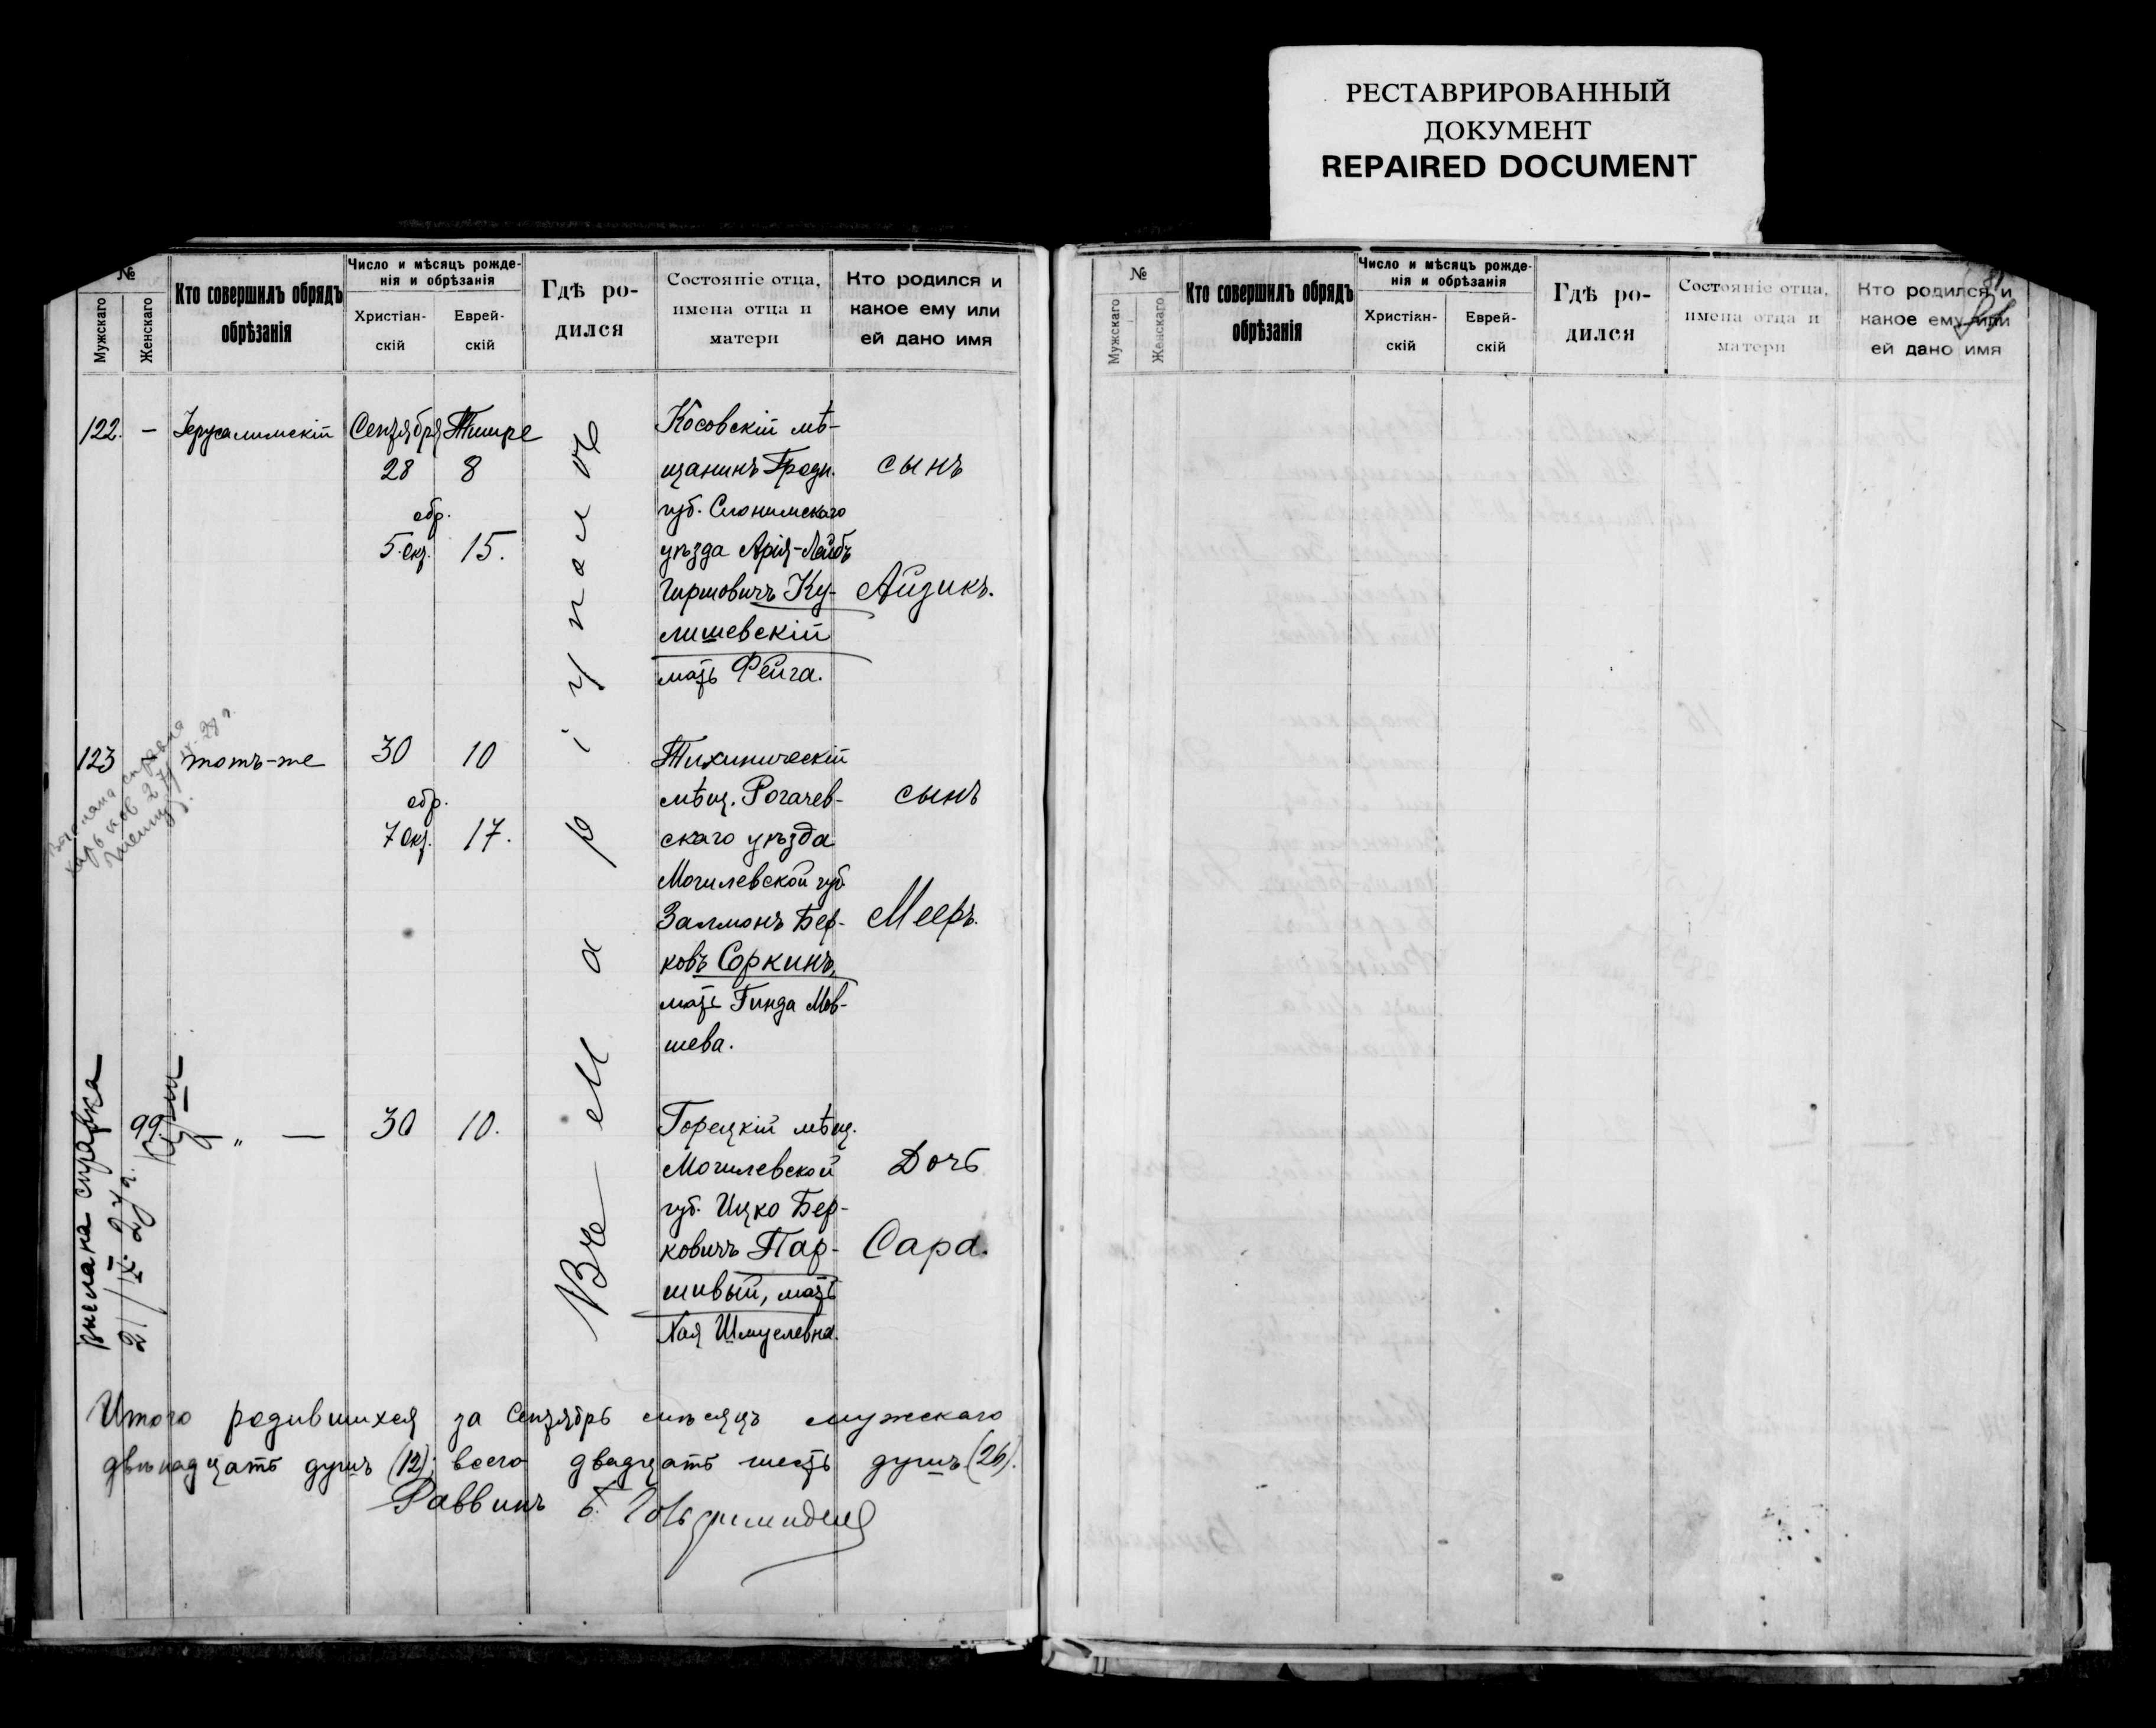 РЕСТАВРИРОВАННЫЙ
ДОКУМЕНТ
REPAIRED DOCUMENT
№
Мужскаго
Женскаго
Кто совершилъ обрядъ
обрѣзанія
Число и мѣсяцъ рожде-
нія и обрѣзанія
Христіан-
скій
Еврей-
скій
Гдѣ ро-
дился
Состояніе отца,
имена отца и
матери
Кто родился и
какое ему или
ей дано имя
122. —
Іерусалимскій
Сентября
28
обр.
5 Окт.
Тишре
8
15.
Косовскій мѣ-
щанинъ Гродн.
губ. Слонимскаго
уѣзда Арія-Лейбъ
Гиршовичъ Ку-
лишевскій
мать Фейга.
сынъ
Айзикъ.
123
тотъ-же
30
обр.
7 Окт.
10
17.
Тихиническій
мѣщ. Рогачев-
скаго уѣзда
Могилевской губ.
Залмонъ Бер-
ковъ Соркинъ,
мать Гинда Мов-
шева.
сынъ
Мееръ.
99
— „ —
30
10.
Горецкій мѣщ.
Могилевской
губ. Ицко Бер-
ковичъ Пар-
шивый, мать
Хая Шмуелевна.
Дочь
Сара.
Маріуполѣ
справка
21/IX 27 г.
Итого родившихся за Сентябрь мѣсяцъ мужскаго
двѣнадцать душъ (12); всего двадцать шесть душъ (26).
Раввинъ Б.
№
Мужскаго
Женскаго
Кто совершилъ обрядъ
обрѣзанія
Число и мѣсяцъ рожде-
нія и обрѣзанія
Христіан-
скій
Еврей-
скій
Гдѣ ро-
дился
Состояніе отца,
имена отца и
матери
Кто родился и
какое ему или
ей дано имя